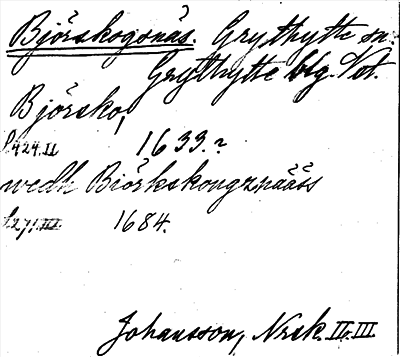 Björskogsnäs. Grythytte sn.
Grythytte blg. Vst.
Björsko,
s. 424. II 1633. ?
wedh Biörkskougznääss
s. 271. III 1684.
Johansson, Nrsk. II o. III